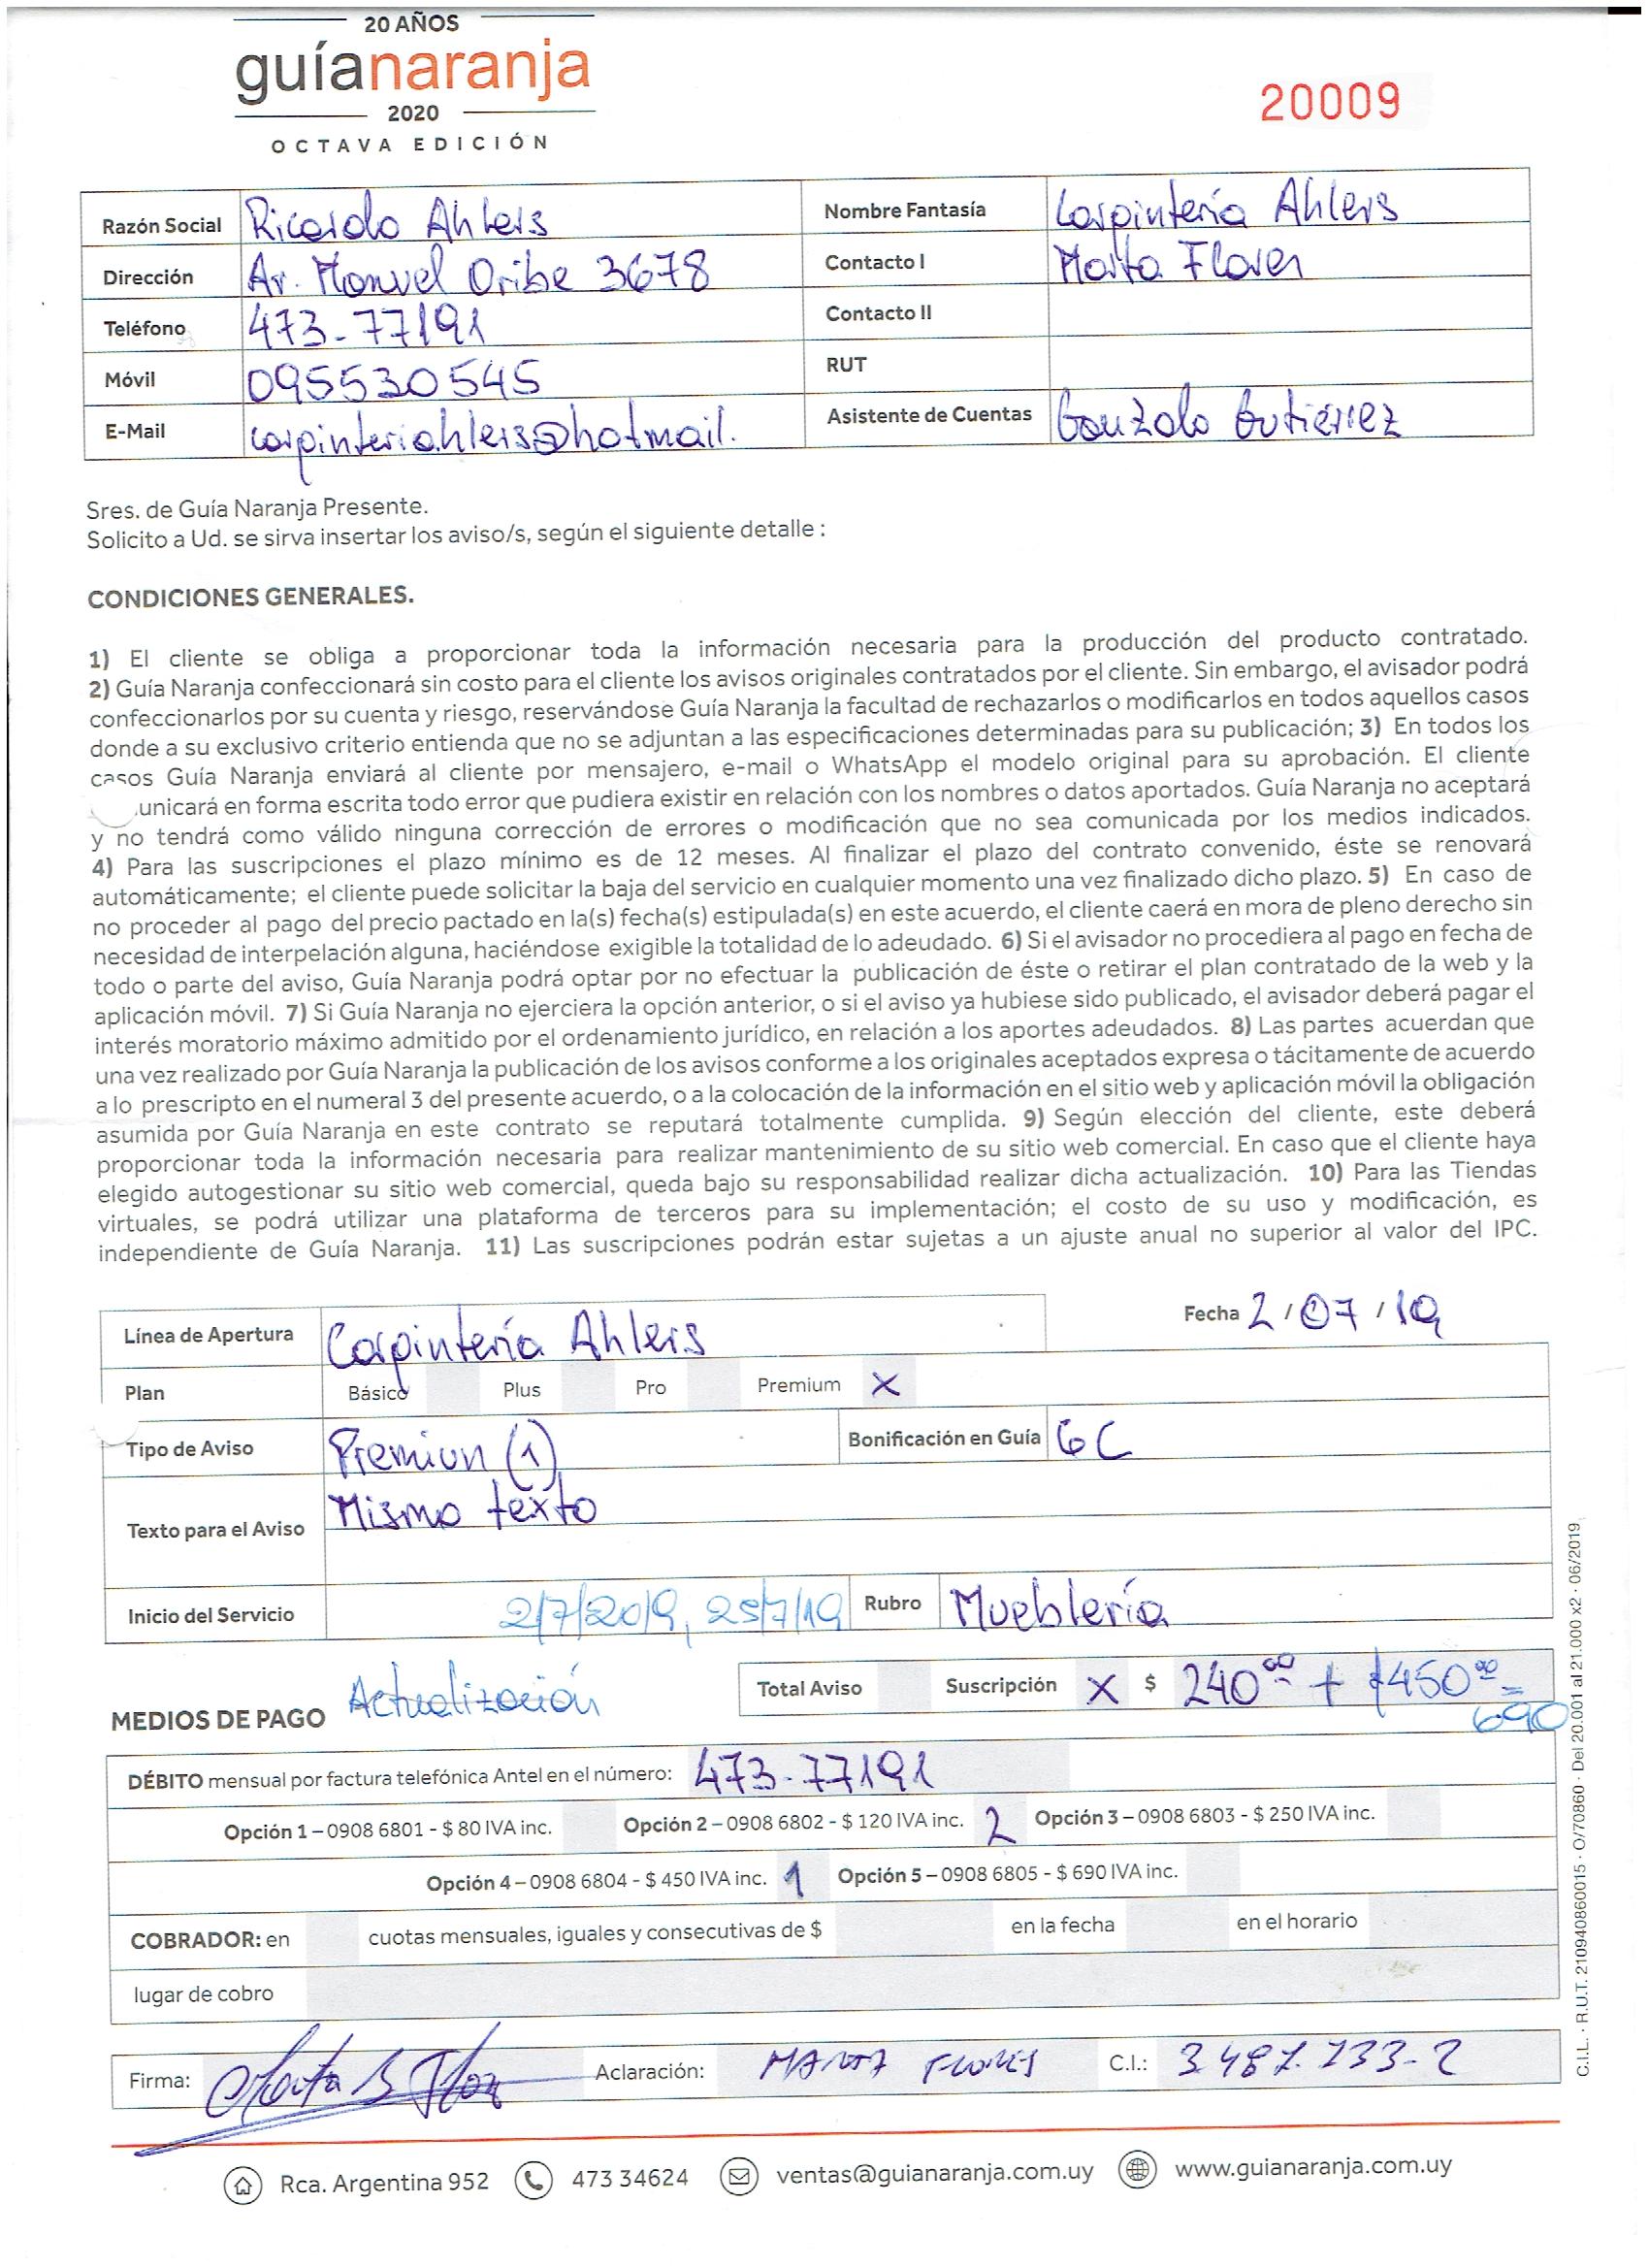 20 AÑOS
guíanaranja
2020
OCTAVA EDICIÓN
20009
Razón Social Ricardo Ahlers Nombre Fantasía Carpintería Ahlers
Dirección Av. Manuel Oribe 3678 Contacto I Marta Flores
Teléfono 473-77191 Contacto II
Móvil 095530545 RUT
E-Mail carpinteriahlers@hotmail. Asistente de Cuentas Gonzalo Gutiérrez
Sres. de Guía Naranja Presente.
Solicito a Ud. se sirva insertar los aviso/s, según el siguiente detalle :
CONDICIONES GENERALES.
1) El cliente se obliga a proporcionar toda la información necesaria para la producción del producto contratado.
2) Guía Naranja confeccionará sin costo para el cliente los avisos originales contratados por el cliente. Sin embargo, el avisador podrá
confeccionarlos por su cuenta y riesgo, reservándose Guía Naranja la facultad de rechazarlos o modificarlos en todos aquellos casos
donde a su exclusivo criterio entienda que no se adjuntan a las especificaciones determinadas para su publicación; 3) En todos los
casos Guía Naranja enviará al cliente por mensajero, e-mail o WhatsApp el modelo original para su aprobación. El cliente
unicará en forma escrita todo error que pudiera existir en relación con los nombres o datos aportados. Guía Naranja no aceptará
y no tendrá como válido ninguna corrección de errores o modificación que no sea comunicada por los medios indicados.
4) Para las suscripciones el plazo mínimo es de 12 meses. Al finalizar el plazo del contrato convenido, éste se renovará
automáticamente; el cliente puede solicitar la baja del servicio en cualquier momento una vez finalizado dicho plazo. 5) En caso de
no proceder al pago del precio pactado en la(s) fecha(s) estipulada(s) en este acuerdo, el cliente caerá en mora de pleno derecho sin
necesidad de interpelación alguna, haciéndose exigible la totalidad de lo adeudado. 6) Si el avisador no procediera al pago en fecha de
todo o parte del aviso, Guía Naranja podrá optar por no efectuar la publicación de éste o retirar el plan contratado de la web y la
aplicación móvil. 7) Si Guía Naranja no ejerciera la opción anterior, o si el aviso ya hubiese sido publicado, el avisador deberá pagar el
interés moratorio máximo admitido por el ordenamiento jurídico, en relación a los aportes adeudados. 8) Las partes acuerdan que
una vez realizado por Guía Naranja la publicación de los avisos conforme a los originales aceptados expresa o tácitamente de acuerdo
a lo prescripto en el numeral 3 del presente acuerdo, o a la colocación de la información en el sitio web y aplicación móvil la obligación
asumida por Guía Naranja en este contrato se reputará totalmente cumplida. 9) Según elección del cliente, este deberá
proporcionar toda la información necesaria para realizar mantenimiento de su sitio web comercial. En caso que el cliente haya
elegido autogestionar su sitio web comercial, queda bajo su responsabilidad realizar dicha actualización. 10) Para las Tiendas
virtuales, se podrá utilizar una plataforma de terceros para su implementación; el costo de su uso y modificación, es
independiente de Guía Naranja. 11) Las suscripciones podrán estar sujetas a un ajuste anual no superior al valor del IPC.
Línea de Apertura Carpintería Ahlers Fecha 2 / 07 / 19
Plan Básico Plus Pro Premium X
Tipo de Aviso Premiun (1) Bonificación en Guía 6C
Texto para el Aviso Mismo texto
Inicio del Servicio 2/7/2019, 25/7/19 Rubro Mueblería
Actualización Total Aviso Suscripción X $ 240⁰⁰ + $450⁰⁰ =
690
MEDIOS DE PAGO
DÉBITO mensual por factura telefónica Antel en el número: 473-77191
Opción 1 – 0908 6801 - $ 80 IVA inc. Opción 2 – 0908 6802 - $ 120 IVA inc. 2 Opción 3 – 0908 6803 - $ 250 IVA inc.
Opción 4 – 0908 6804 - $ 450 IVA inc. 1 Opción 5 – 0908 6805 - $ 690 IVA inc.
COBRADOR: en cuotas mensuales, iguales y consecutivas de $ en la fecha en el horario
lugar de cobro
Firma: Marta S Flores Aclaración: MARTA FLORES C.I.: 3487.133-2
Rca. Argentina 952 473 34624 ventas@guianaranja.com.uy www.guianaranja.com.uy
C.I.L. · R.U.T. 210940860015 · O/70860 · Del 20.001 al 21.000 x2 · 06/2019